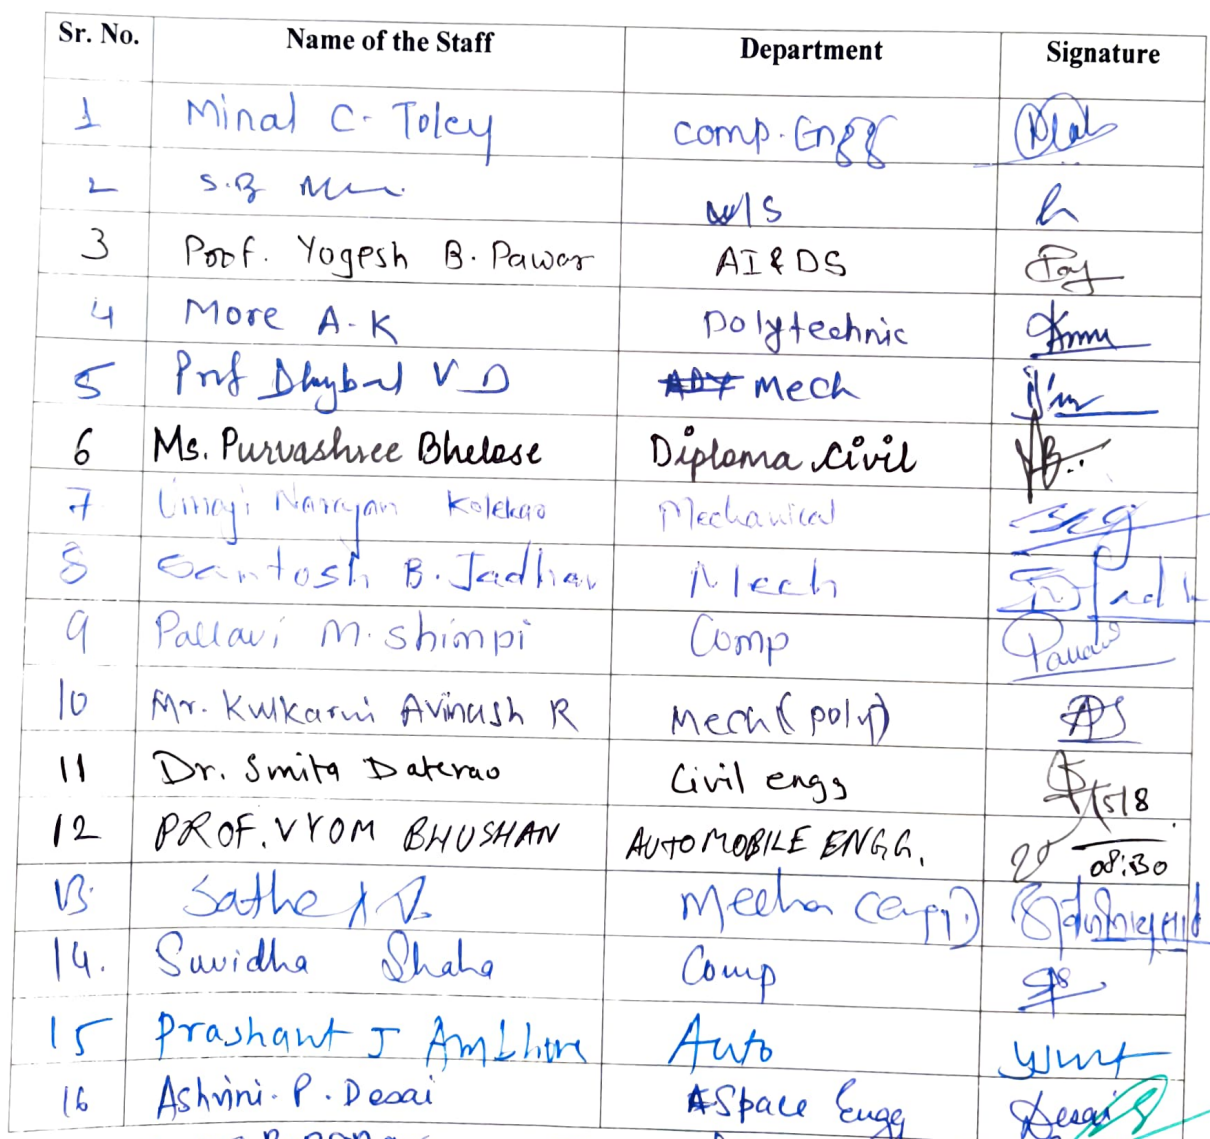 Sr. No. Name of the Staff Department Signature
1 Minal C. Toley comp. Engg
2 S.B W/S
3 Prof. Yogesh B. Pawar AI & DS
4 More A. K Polytechnic
5 Prof Dhaybal V D Mech
6 Ms. Purvashree Bhelose Diploma Civil
7 Umaji Narayan Kolekar Mechanical
8 Santosh B. Jadhav Mech
9 Pallavi M. Shimpi Comp
10 Mr. Kulkarni Avinash R Mech (poly)
11 Dr. Smita Daterao Civil engg 15/8
12 PROF. VYOM BHUSHAN AUTOMOBILE ENGG. 08:30
13. Sathe
14. Suvidha Shaha Comp
15 Prashant J Ambhore Auto
16 Ashvini. P. Desai ASpace Engg Desai